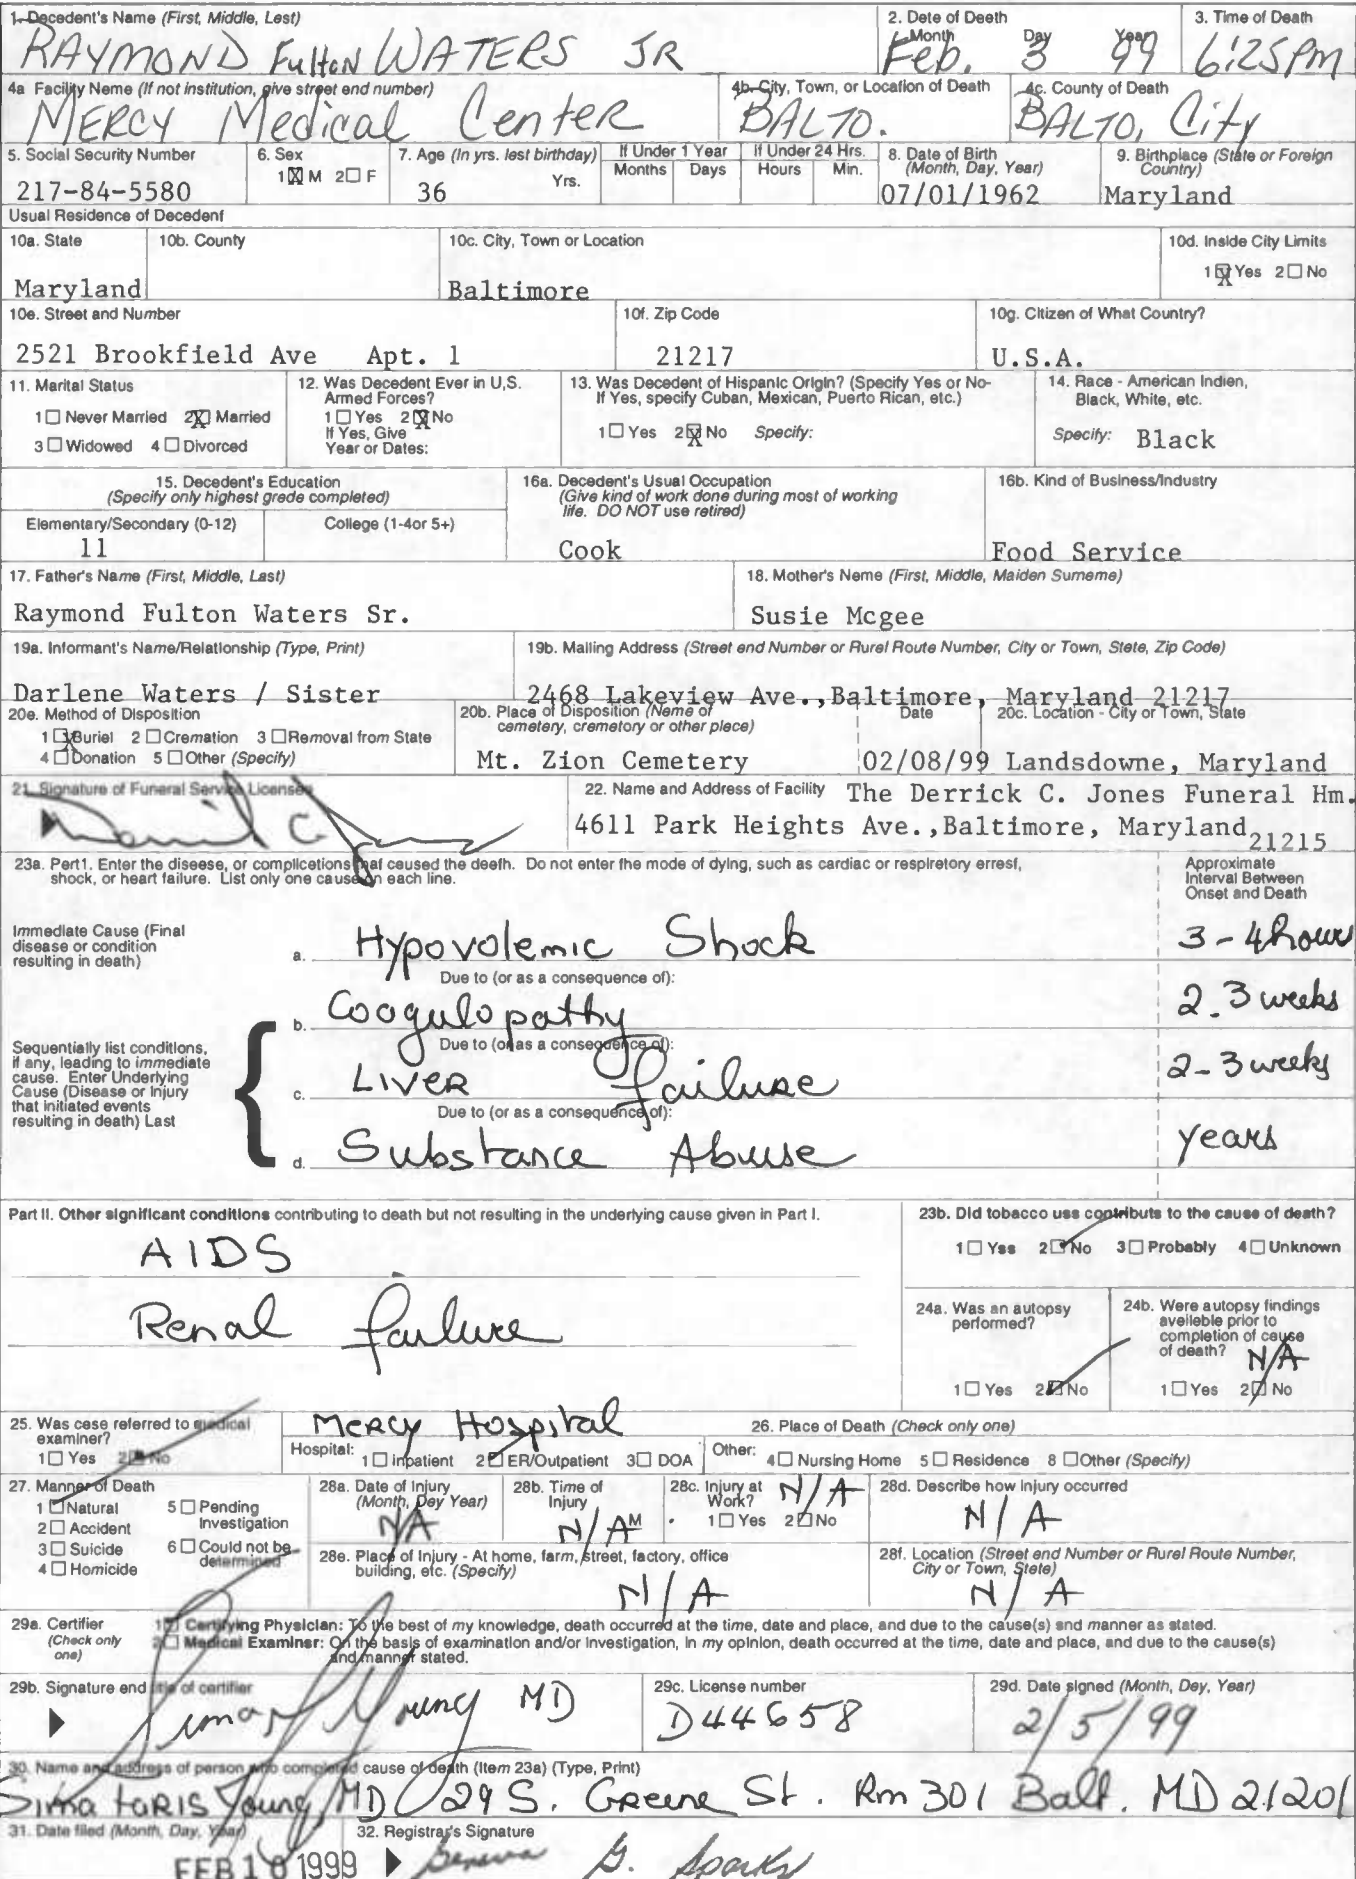 1. Decedent's Name (First, Middle, Last)
RAYMOND Fulton WATERS JR
2. Date of Death
Month Day Year
Feb. 3 99
3. Time of Death
6:25 PM
4a Facility Name (If not institution, give street and number)
MERCY Medical Center
4b. City, Town, or Location of Death
BALTO.
4c. County of Death
BALTO, City
5. Social Security Number
217-84-5580
6. Sex
1☒ M 2☐ F
7. Age (In yrs. last birthday)
36 Yrs.
If Under 1 Year
Months Days
If Under 24 Hrs.
Hours Min.
8. Date of Birth
(Month, Day, Year)
07/01/1962
9. Birthplace (State or Foreign
Country)
Maryland
Usual Residence of Decedent
10a. State
Maryland
10b. County
10c. City, Town or Location
Baltimore
10d. Inside City Limits
1☒ Yes 2☐ No
10e. Street and Number
2521 Brookfield Ave Apt. 1
10f. Zip Code
21217
10g. Citizen of What Country?
U.S.A.
11. Marital Status
1☐ Never Married 2☒ Married
3☐ Widowed 4☐ Divorced
12. Was Decedent Ever in U,S.
Armed Forces?
1☐ Yes 2☒ No
If Yes, Give
Year or Dates:
13. Was Decedent of Hispanic Origin? (Specify Yes or No-
If Yes, specify Cuban, Mexican, Puerto Rican, etc.)
1☐ Yes 2☒ No Specify:
14. Race - American Indian,
Black, White, etc.
Specify: Black
15. Decedent's Education
(Specify only highest grade completed)
Elementary/Secondary (0-12) College (1-4or 5+)
11
16a. Decedent's Usual Occupation
(Give kind of work done during most of working
life. DO NOT use retired)
Cook
16b. Kind of Business/Industry
Food Service
17. Father's Name (First, Middle, Last)
Raymond Fulton Waters Sr.
18. Mother's Name (First, Middle, Maiden Surname)
Susie Mcgee
19a. Informant's Name/Relationship (Type, Print)
Darlene Waters / Sister
19b. Mailing Address (Street and Number or Rural Route Number, City or Town, State, Zip Code)
2468 Lakeview Ave.,Baltimore, Maryland 21217
20a. Method of Disposition
1☒ Burial 2☐ Cremation 3☐ Removal from State
4☐ Donation 5☐ Other (Specify)
20b. Place of Disposition (Name of
cemetery, crematory or other place)
Mt. Zion Cemetery
Date
02/08/99
20c. Location - City or Town, State
Landsdowne, Maryland
21. Signature of Funeral Service Licensee
22. Name and Address of Facility The Derrick C. Jones Funeral Hm.
4611 Park Heights Ave.,Baltimore, Maryland 21215
23a. Part1. Enter the disease, or complications that caused the death. Do not enter the mode of dying, such as cardiac or respiratory arrest,
shock, or heart failure. List only one cause on each line.
Approximate
Interval Between
Onset and Death
Immediate Cause (Final
disease or condition
resulting in death)
a. Hypovolemic Shock 3-4 hours
Due to (or as a consequence of):
b. Coogulopathy 2-3 weeks
Due to (or as a consequence of):
Sequentially list conditions,
if any, leading to immediate
cause. Enter Underlying
Cause (Disease or Injury
that initiated events
resulting in death) Last
c. LIVER failure 2-3 weeks
Due to (or as a consequence of):
d. Substance Abuse years
Part II. Other significant conditions contributing to death but not resulting in the underlying cause given in Part I.
AIDS
Renal failure
23b. Did tobacco use contribute to the cause of death?
1☐ Yes 2☑ No 3☐ Probably 4☐ Unknown
24a. Was an autopsy
performed?
1☐ Yes 2☑ No
24b. Were autopsy findings
available prior to
completion of cause
of death? N/A
1☐ Yes 2☑ No
25. Was case referred to medical
examiner?
1☐ Yes 2☑ No
Mercy Hospital
26. Place of Death (Check only one)
Hospital: 1☐ Inpatient 2☑ ER/Outpatient 3☐ DOA Other: 4☐ Nursing Home 5☐ Residence 8☐ Other (Specify)
27. Manner of Death
1☑ Natural 5☐ Pending
Investigation
2☐ Accident
3☐ Suicide 6☐ Could not be
determined
4☐ Homicide
28a. Date of Injury
(Month, Day Year)
N/A
28b. Time of
Injury
N/A M
28c. Injury at
Work? N/A
1☐ Yes 2☑ No
28d. Describe how Injury occurred
N/A
28e. Place of Injury - At home, farm, street, factory, office
building, etc. (Specify)
N/A
28f. Location (Street and Number or Rural Route Number,
City or Town, State)
N/A
29a. Certifier
(Check only
one)
1☑ Certifying Physician: To the best of my knowledge, death occurred at the time, date and place, and due to the cause(s) and manner as stated.
2☐ Medical Examiner: On the basis of examination and/or Investigation, in my opinion, death occurred at the time, date and place, and due to the cause(s)
and manner stated.
29b. Signature and title of certifier
Young MD
29c. License number
D44658
29d. Date signed (Month, Day, Year)
2/5/99
30. Name and address of person who completed cause of death (Item 23a) (Type, Print)
Sima FARIS Young, MD 29 S. Greene St. Rm 301 Balt. MD 21201
31. Date filed (Month, Day, Year)
FEB 10 1999
32. Registrar's Signature
Geneva G. Sparks